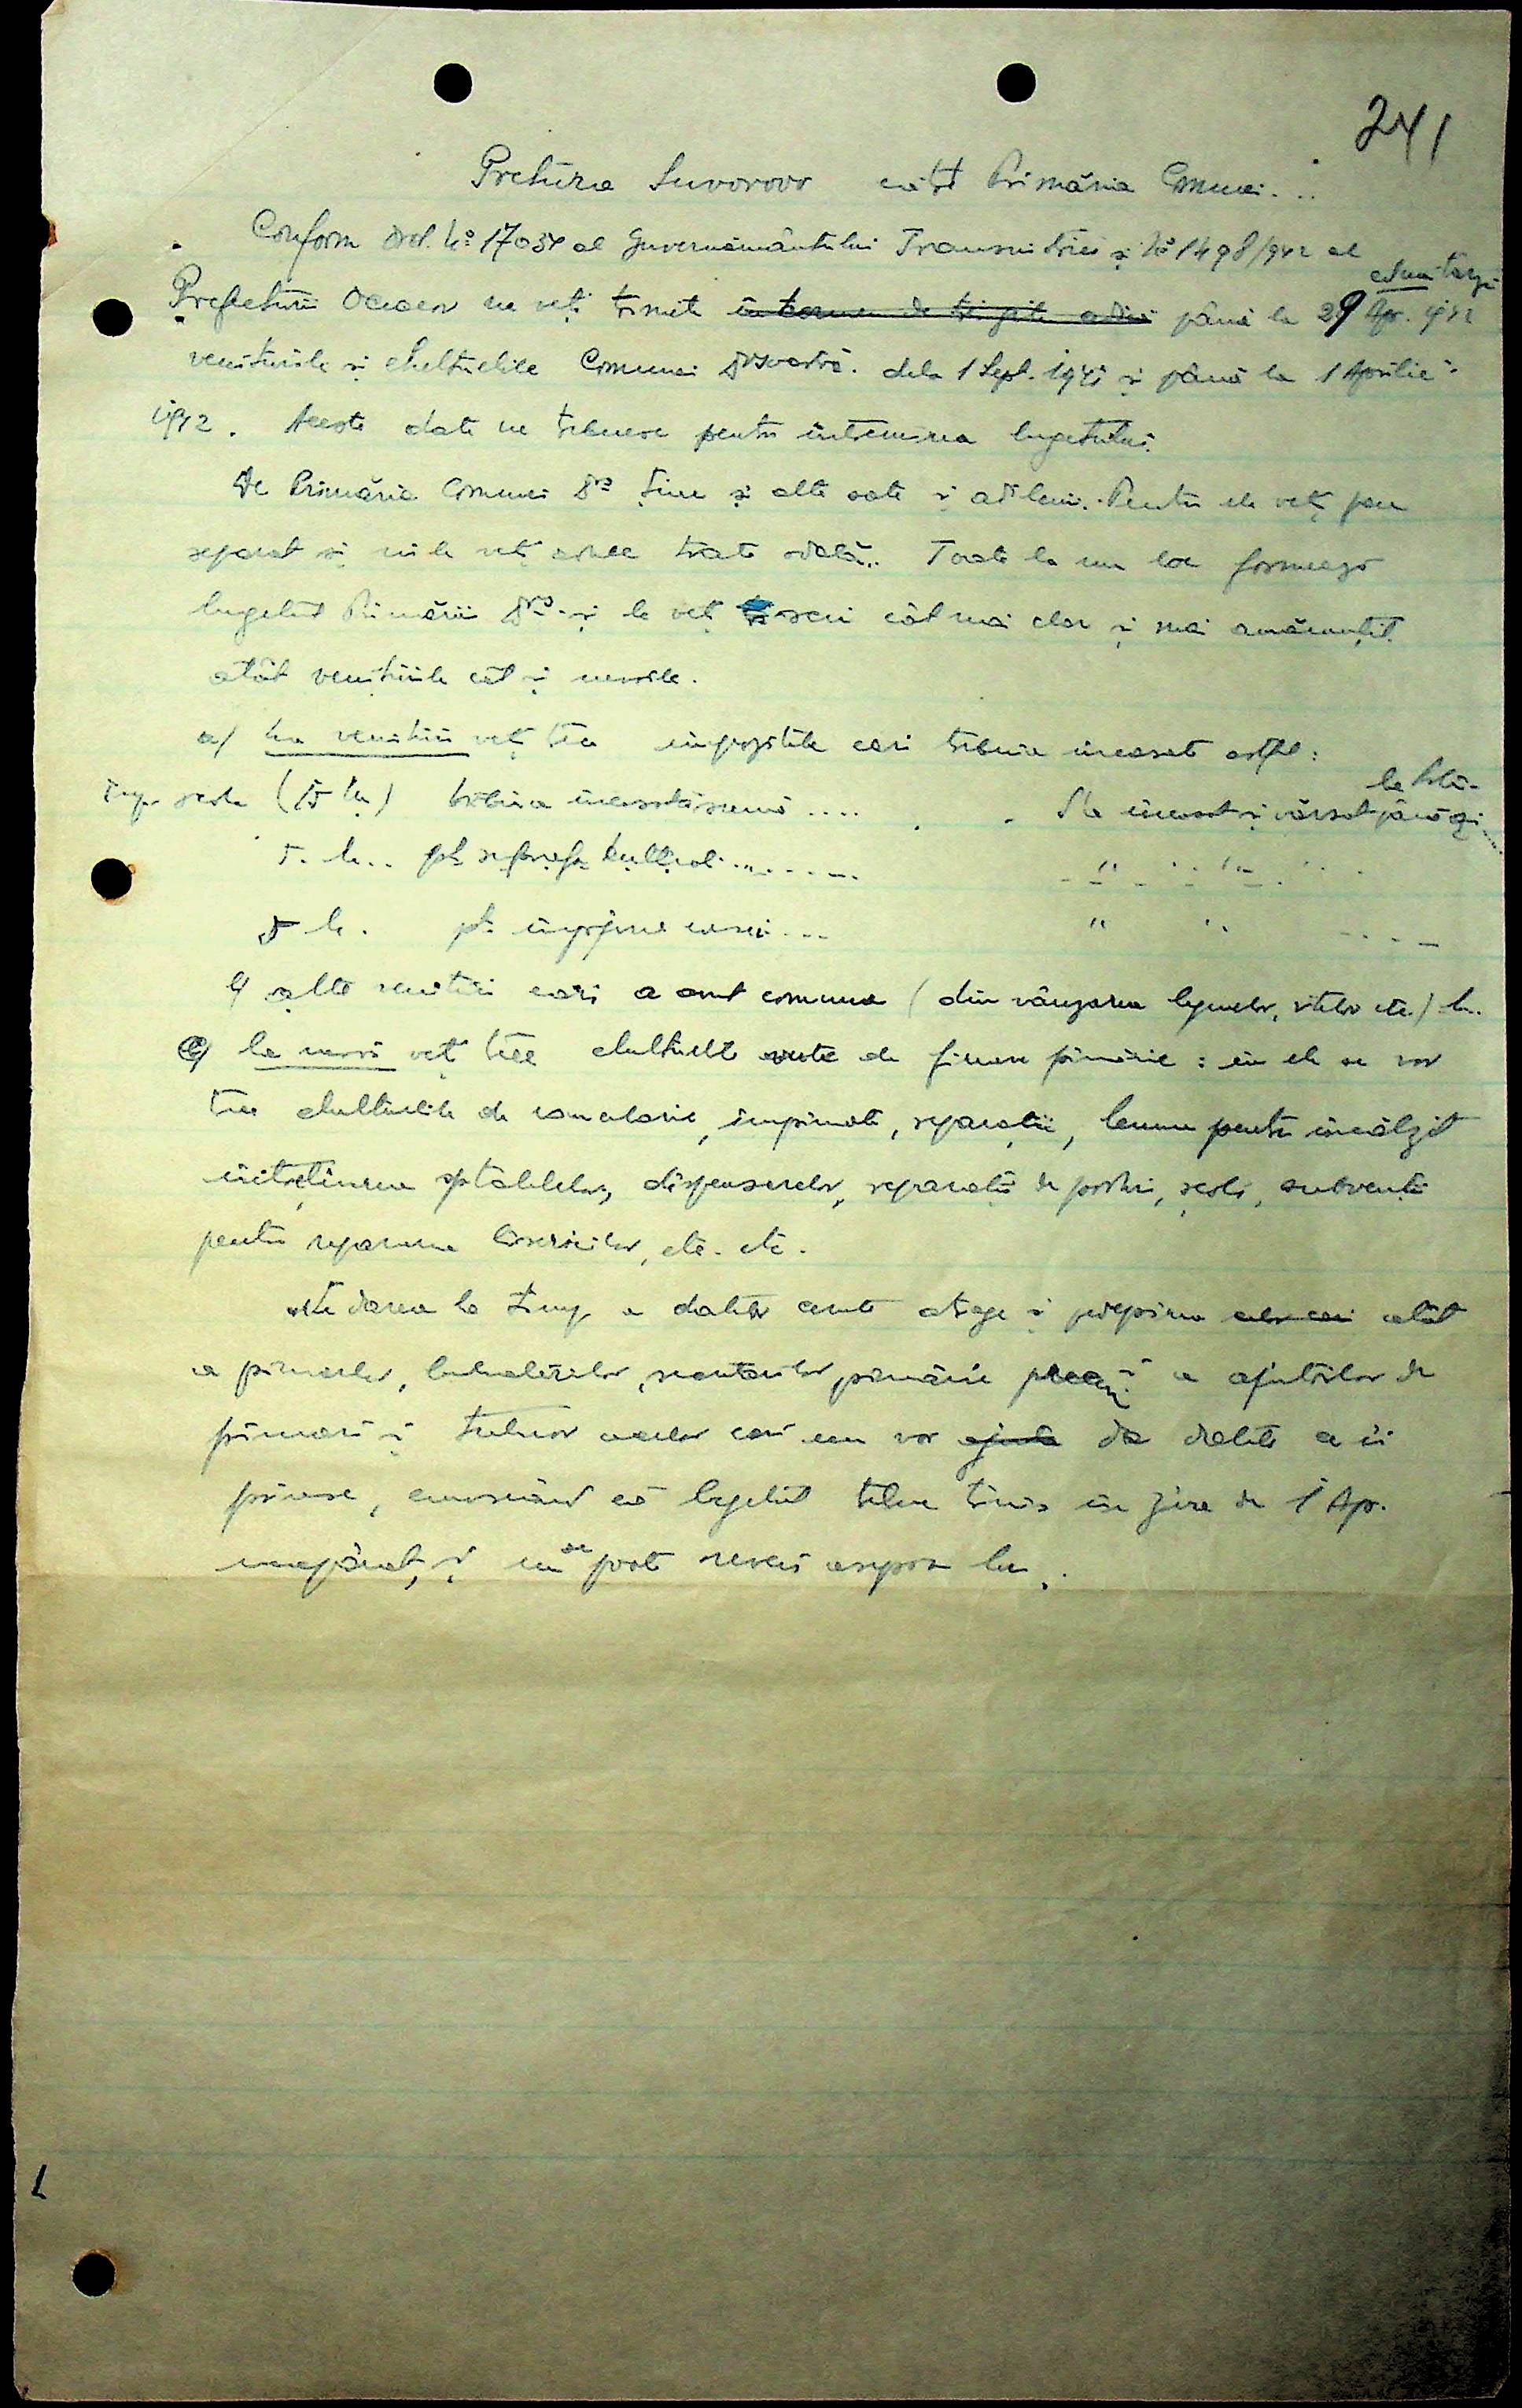 241
Pretura Suvorovo către Primăria Comunei...
Conform Ord. No 17034 al Guvernământului Transnistriei și No 1498/942 al
Prefecturii Oceacov ne veți trimite în termen de trei zile adică până la 29 Ap. 942
cel mai târziu
veniturile și cheltuelile Comunei Dvoastră. dela 1 Sept. 1941 și până la 1 Aprilie
1942. Aceste date ne trebuesc pentru întocmirea bugetului.
De Primăria Comunei Dvs ține și alte sate și . Pentru ele veți pune
separat și ni le veți aduce toate odată. Toate la un loc formează
bugetul Primării Dvs. și le veți scri cât mai clar și mai amănunțit.
atât veniturile cât și
a/ La venituri veți trece impozitele cari trebuia încasat astfel:
(15 lei) trebuia încasată suma .... S'a încasat și vărsat până azi
5 lei.. pt suprafața ........
5 lei. pt. îngrijirea ... " "
alte venituri cari a avut comuna (din vânzarea legumelor, vitelor etc.) lei.
c/ la veți trece cheltuelile de fiecare primărie: în ele se vor
trece cheltuelile de cancelarie, imprimate, reparații, lemne pentru încălzit
întreținerea spitalelor, dispenserelor, reparații de poduri, școli, subvenții
pentru repararea bisericilor, etc. etc.
darea la timp a datelor cerute atrage și atât
a primarilor, , secretarilor primăriei precum și a ajutorilor de
primari și tuturor acelor cari nu vor ajuta da datele ce îi
privesc, cunoscând că bugetul trebue trimis în ziua de 1 Ap.
și nu se poate reveni asupra lui.